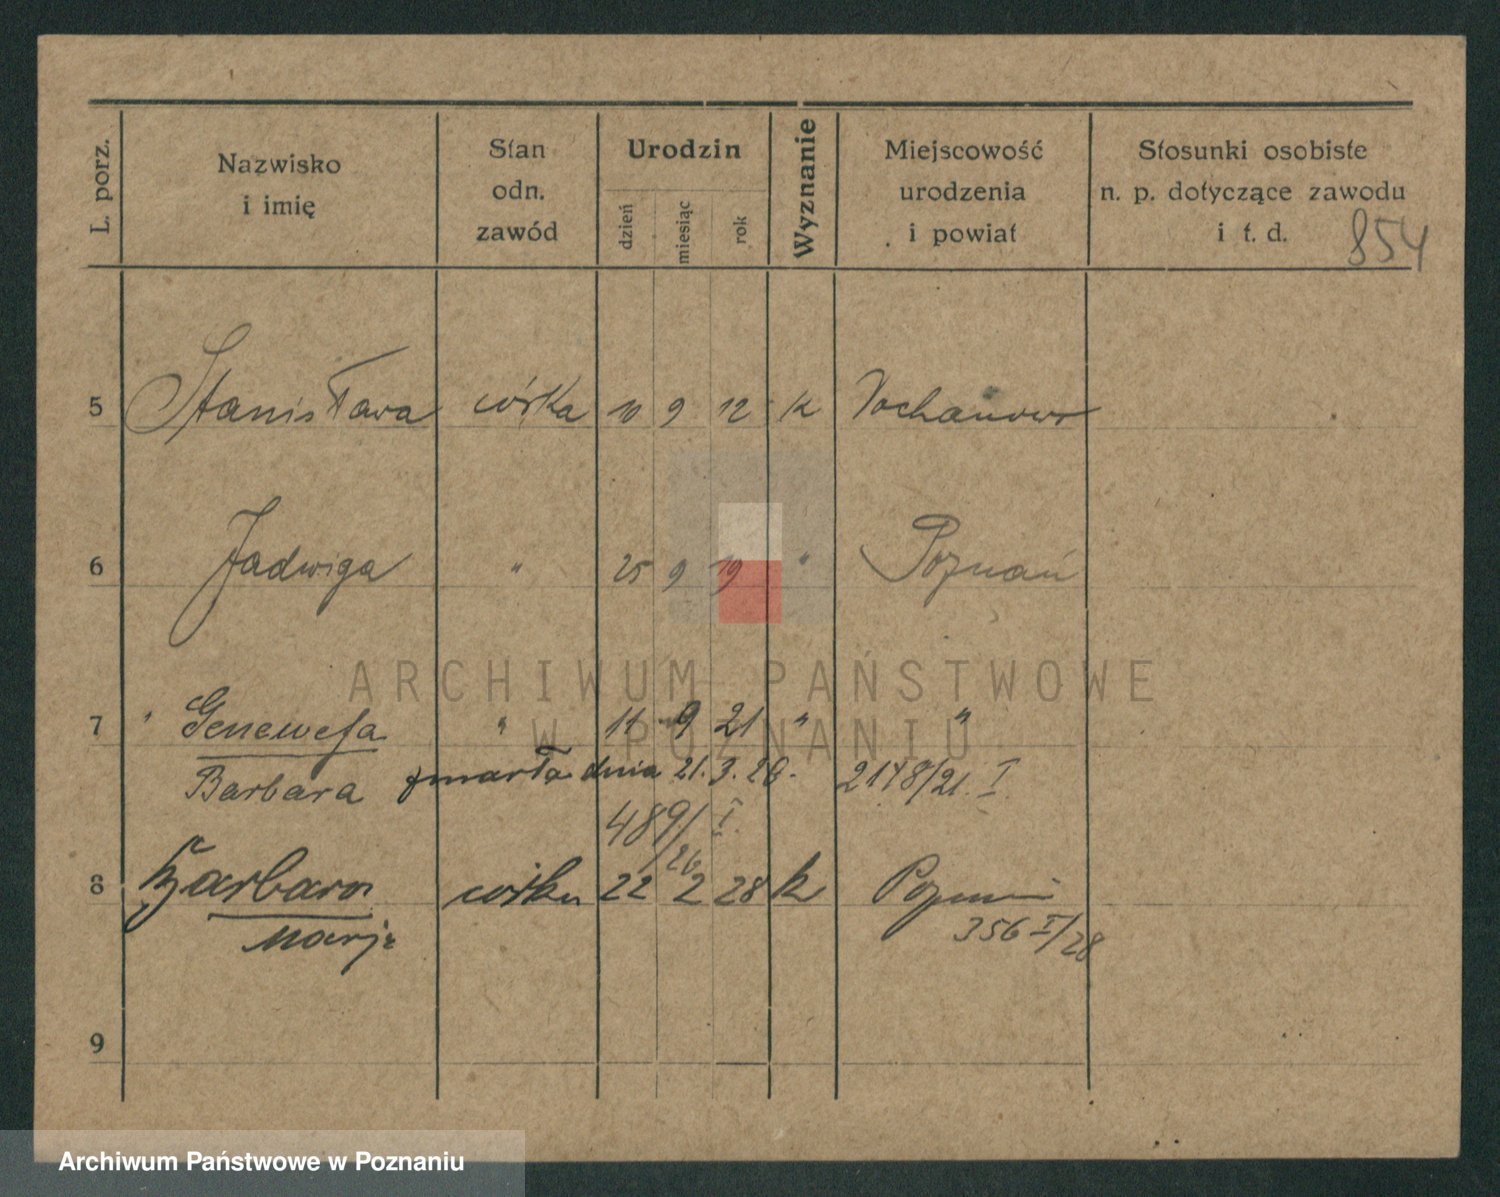 L. porz.
Nazwisko
i imię
Stan
odn.
zawód
Urodzin
dzień
miesiąc
rok
Wyznanie
Miejscowość
urodzenia
i powiat
Stosunki osobiste
n. p. dotyczące zawodu
i t. d.
854
5 Stanisława córka 10 9 12 k
6 Jadwiga " 25 9 19 " Poznań
7 Genewefa " 11 9 21 " "
Barbara zmarła dnia 21.3.26. 2148/21. I
489/26 I.
8 Barbara córka 22 2 28 k Poznań
Marja 356 I/28
9
ARCHIWUM PAŃSTWOWE
W POZNANIU
Archiwum Państwowe w Poznaniu